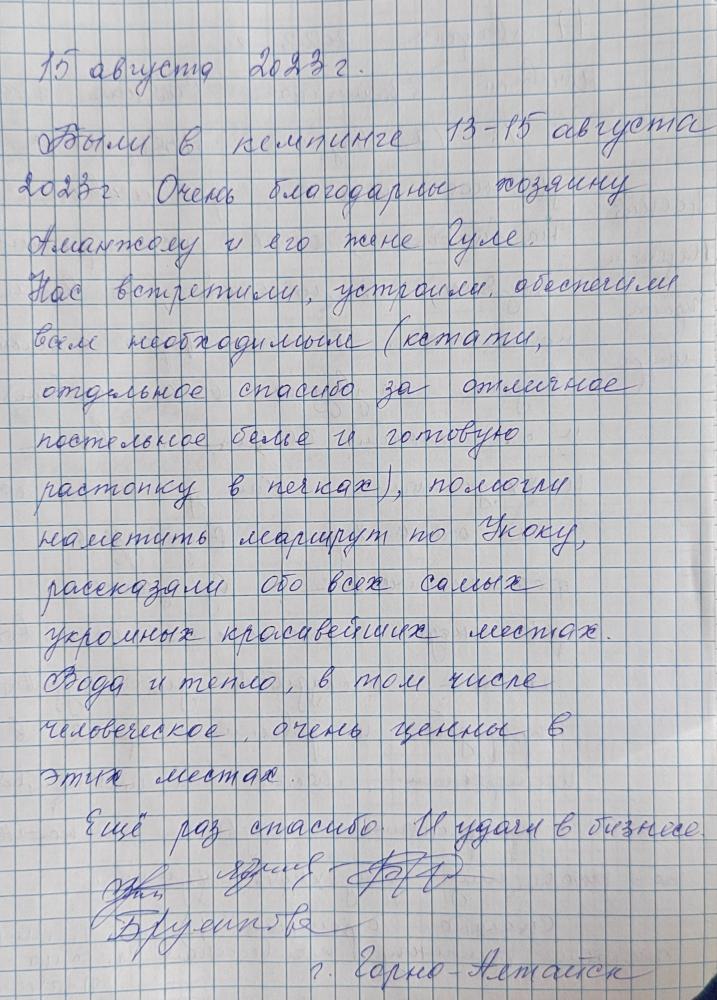 15 августа 2023 г.
Были в кемпинге 13-15 августа
2023 г. Очень благодарны хозяину
Аманжолу и его жене Гуле.
Нас встретили, устроили, обеспечили
всем необходимым (кстати,
отдельное спасибо за отличное
постельное белье и готовую
растопку в печках), помогли
наметить маршрут по Укоку,
рассказали обо всех самых
укромных красивейших местах.
Вода и тепло, в том числе
человеческое, очень ценны в
этих местах.
Ещё раз спасибо. И удачи в бизнесе.
г. Горно-Алтайск